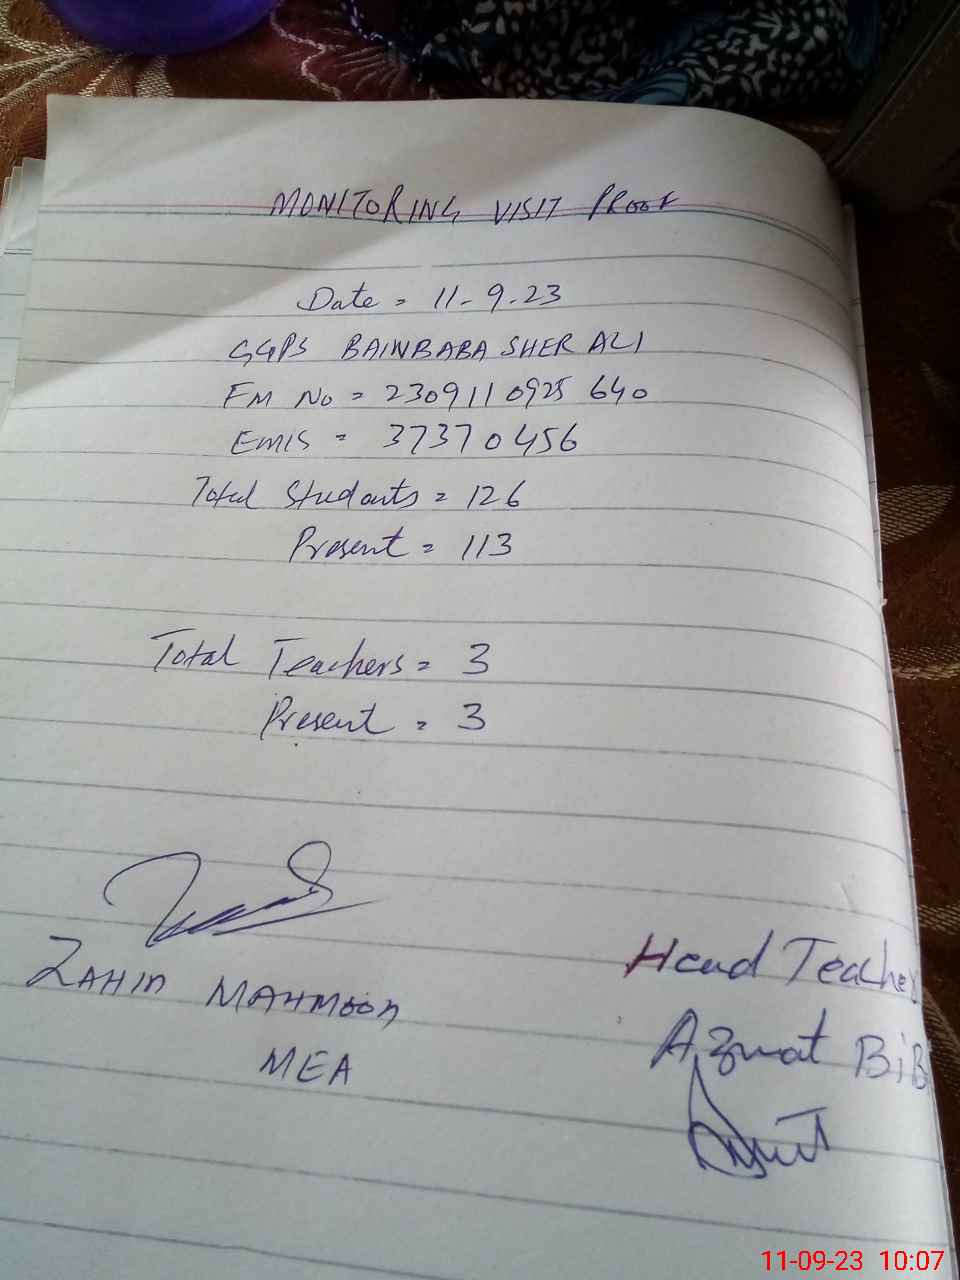 MONITORING VISIT PROOF
Date = 11-9-23
GGPS BAINBABA SHER ALI
FM No = 2309110925 640
EMIS = 37370456
Total Students = 126
Present = 113
Total Teachers = 3
Present = 3
ZAHID MAHMOOD
MEA
Head Teacher
Azmat BiBi
11-09-23 10:07